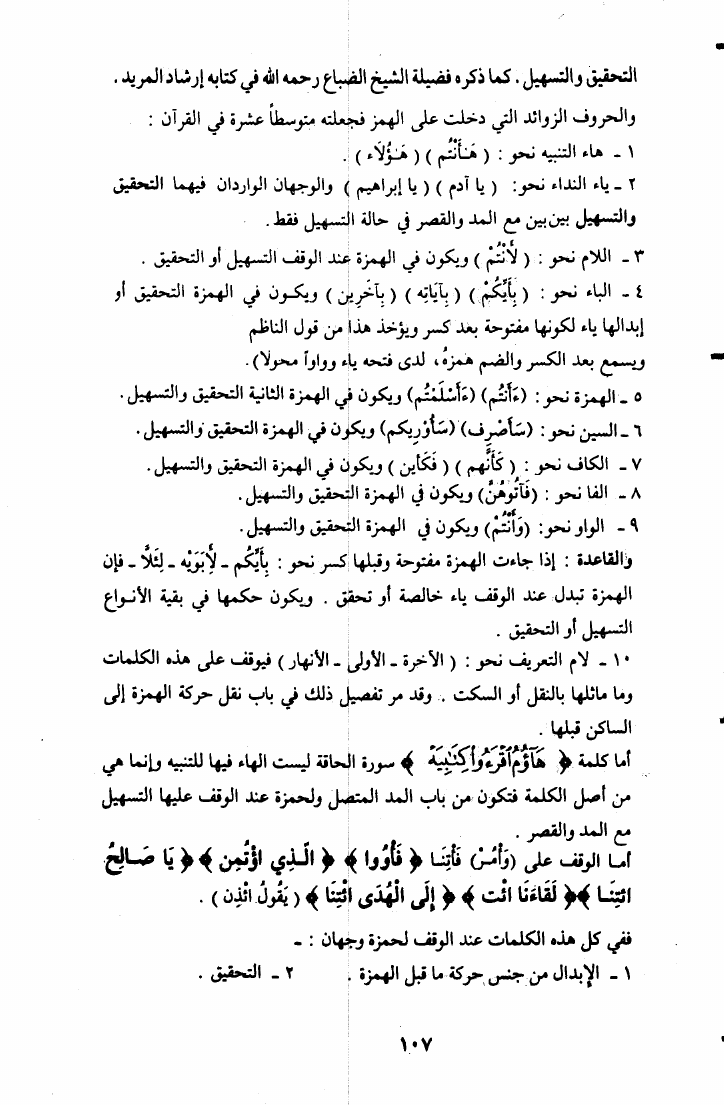 التحقيق والتسهيل. كما ذكره فضيلة الشيخ الضباع رحمه الله في كتابه إرشاد المريد.
والحروف الزوائد التي دخلت على الهمز فجعلته متوسطاً عشرة في القرآن :
١ ـ هاء التنبيه نحو : ( هَـأَنْتُم ) ( هَـؤُلَاء ) .
٢ ـ ياء النداء نحو: ( يا آدم ) ( يا إبراهيم ) والوجهان الواردان فيهما التحقيق
والتسهيل بين بين مع المد والقصر في حالة التسهيل فقط.
٣ ـ اللام نحو : ( لأَنْتُمْ ) ويكون في الهمزة عند الوقف التسهيل أو التحقيق .
٤ ـ الباء نحو : ( بِأَيِّكُمْ ) ( بِآيَاتِه ) ( بِآخَرِين ) ويكـون في الهمزة التحقيق أو
إبدالها ياء لكونها مفتوحة بعد كسر ويؤخذ هذا من قول الناظم
ويسمع بعد الكسر والضم همزهُ، لدى فتحه ياء وواواً محولا).
٥ ـ الهمزة نحو: (ءَأَنْتُم) (ءَأَسْلَمْتُم) ويكون في الهمزة الثانية التحقيق والتسهيل.
٦ ـ السين نحو: (سَأَصْرِف) (سَأُوْرِيكم) ويكون في الهمزة التحقيق والتسهيل.
٧ ـ الكاف نحو : ( كَأَنَّهم ) ( فَكَأَين ) ويكون في الهمزة التحقيق والتسهيل.
٨ ـ الفا نحو : (فَآتُوهُنَّ) ويكون في الهمزة التحقيق والتسهيل.
٩ ـ الواو نحو: (وَأَنْتُمْ) ويكون في الهمزة التحقيق والتسهيل.
والقاعدة : إذا جاءت الهمزة مفتوحة وقبلها كسر نحو : بِأَيِّكُم ـ لِأَبَوَيْه ـ لِئَلَّا ـ فإن
الهمزة تبدل عند الوقف ياء خالصة أو تحقق . ويكون حكمها في بقية الأنـواع
التسهيل أو التحقيق .
١٠ ـ لام التعريف نحو : ( الآخرة ـ الأولى ـ الأنهار ) فيوقف على هذه الكلمات
وما ماثلها بالنقل أو السكت . وقد مر تفصيل ذلك في باب نقل حركة الهمزة إلى
الساكن قبلها .
أما كلمة ﴿ هَآؤُمُ ٱقْرَءُوا۟ كِتَٰبِيَهْ ﴾ سورة الحاقة ليست الهاء فيها للتنبيه وإنما هي
من أصل الكلمة فتكون من باب المد المتصل ولحمزة عند الوقف عليها التسهيل
مع المد والقصر .
أمـا الوقف على (وَأْمُرْ) فَأْتِنَـا ﴿ فَأْوُوا ﴾ ﴿ الَّـذِي اؤْتُمِن ﴾ ﴿ يَا صَـالِحُ
ائتِنَـا ﴾﴿ لَقَاءَنَا ائْت ﴾ ﴿ إِلَى الْهُدَى ائْتِنَا ﴾ ( يَقُولُ ائْذِن ) .
ففي كل هذه الكلمات عند الوقف لحمزة وجهان : ـ
١ ـ الإبدال من جنس حركة ما قبل الهمزة . ٢ ـ التحقيق .
١٠٧